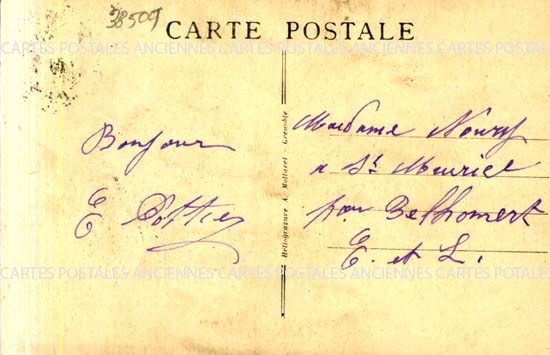 38509
CARTE POSTALE
CARTES POSTALES ANCIENNES CARTES POSTALES ANCIENNES CARTES POSTALES
Bonjour
E Pottier
Madame Noury
a St Maurice
par Belhomert
E. et L.
Héliogravure A. Mollaret - Grenoble
CARTES POTALES ANCIENNES CARTES POTALES ANCIENNES CARTES POTALES